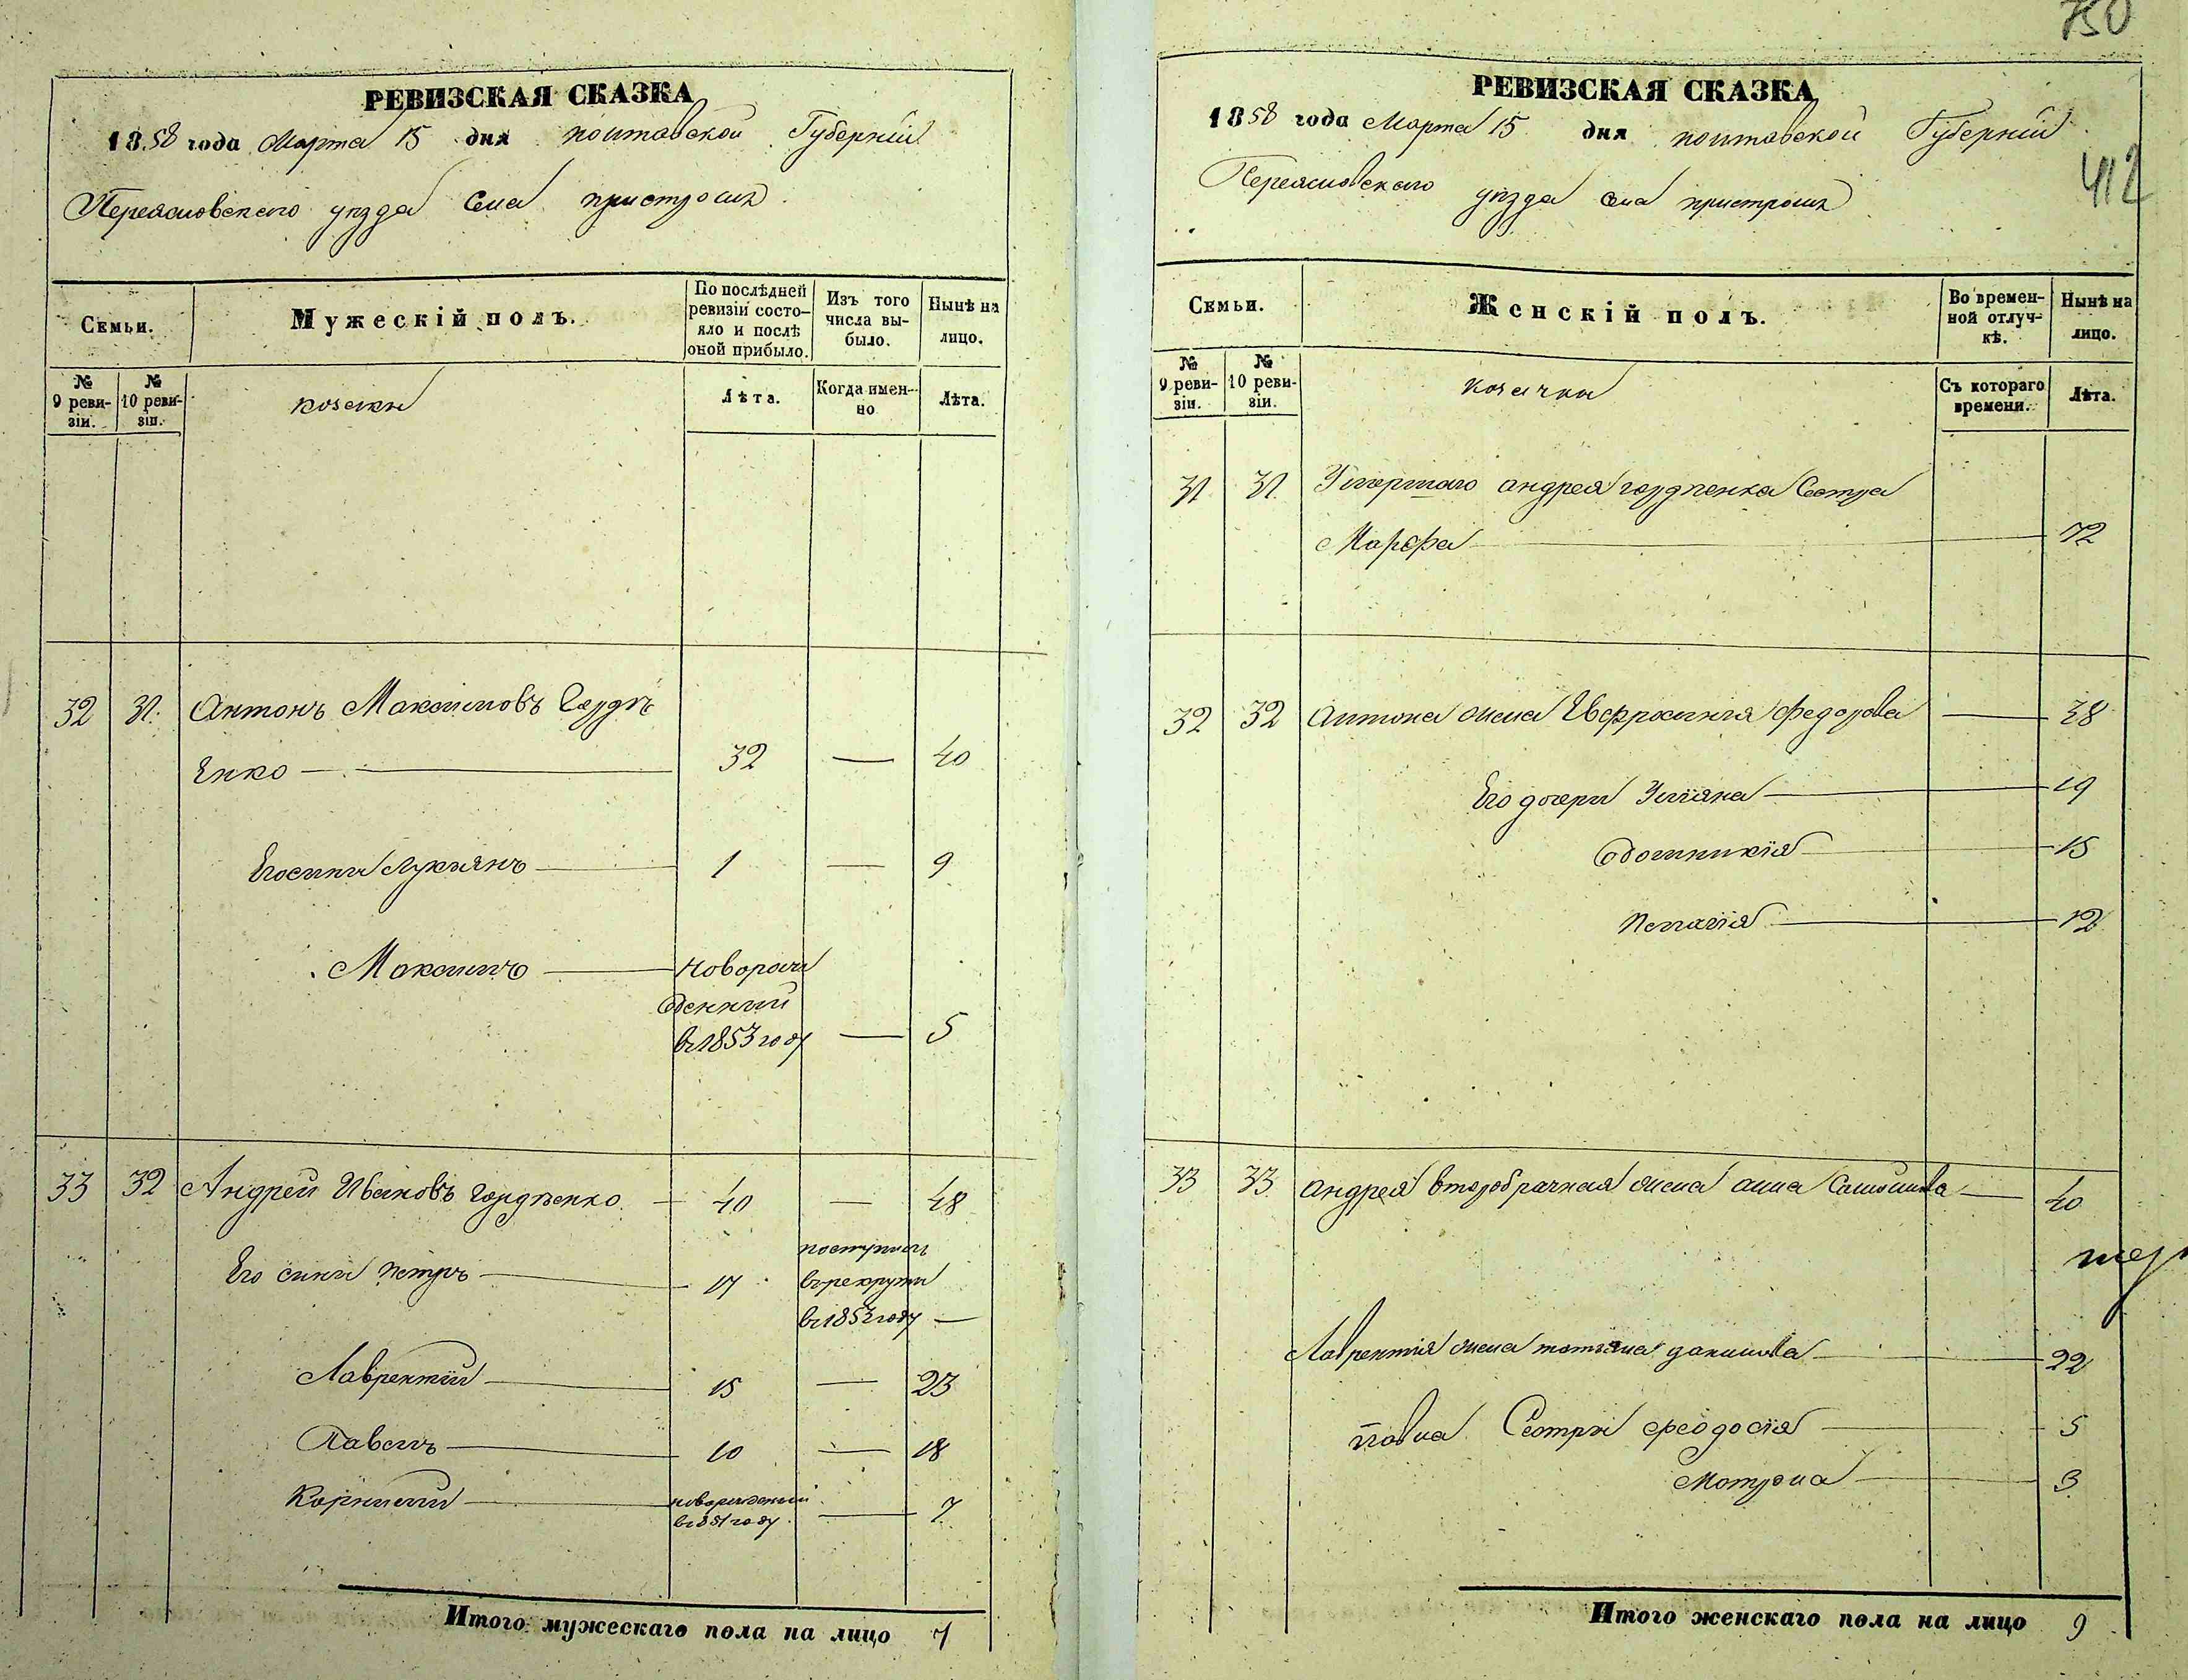 РЕВИЗСКАЯ СКАЗКА
1858 года Марта 15 дня полтавской Губерніи
Переясловского уѣзда Села пристромъ
Семьи.
Мужескій полъ.
По послѣдней ревизіи состояло и послѣ оной прибыло.
Изъ того числа выбыло.
Нынѣ на лицо.
№ 9 ревизіи.
№ 10 ревизіи.
козаки
Лѣта.
Когда именно
Лѣта.
32 31 Антонъ Максимовъ Гордѣ
Енко 32 — 40
Его сини Лукьянъ 1 — 9
Максимъ новорож
денный
въ 1853 году — 5
33 32 Андрей Ивановъ Гордѣенко 40 — 48
Его сини Петръ 17 поступилъ
въ рекруты
въ 1853 году —
Лаврентій 15 — 23
Павелъ 10 — 18
Корнилий новорожденный
в 1851 году — 7
Итого мужескаго пола на лицо 7
750
РЕВИЗСКАЯ СКАЗКА
1858 года Марта 15 дня полтавской Губерніи
412
Переясловского уѣзда Села пристромъ
Семьи.
Женскій полъ.
Во временной отлучкѣ.
Нынѣ на лицо.
№ 9 ревизіи.
№ 10 ревизіи.
козачки
Съ котораго времени.
Лѣта.
31 31 Умершаго андрея гордѣенка Сестра
Марфа 72
32 32 Антона жена Евфросинія федорова — 38
Его дочери Улияна 19
Домникія 15
Пелагія 12
33 33 Андрея второбрачная жена анна 40
Лаврентія жена татьяна данилова 22
Павла Сестри феодосія 5
Мотрона 3
Итого женскаго пола на лицо 9